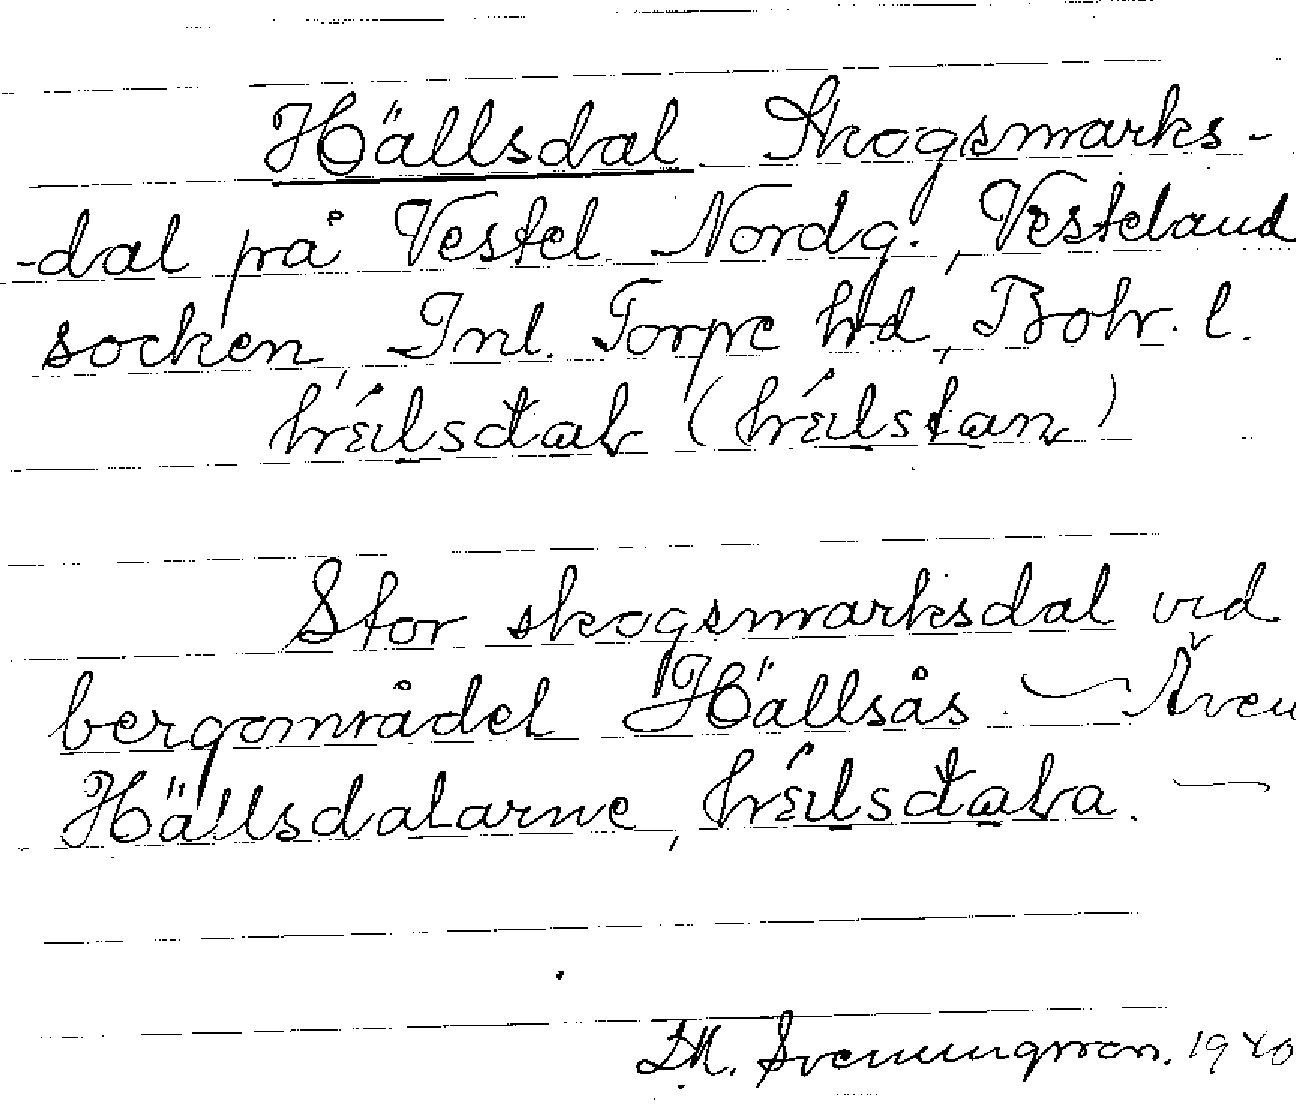 Hällsdal. Skogsmarks-
-dal på Vestel Nordg., Vesteland
socken, Inl. Torpe hrd, Bohr. l.
Stor skogsmarksdal vid
bergområdet Hällsås. — Även
Hällsdalarne,
Svenungsson. 1940